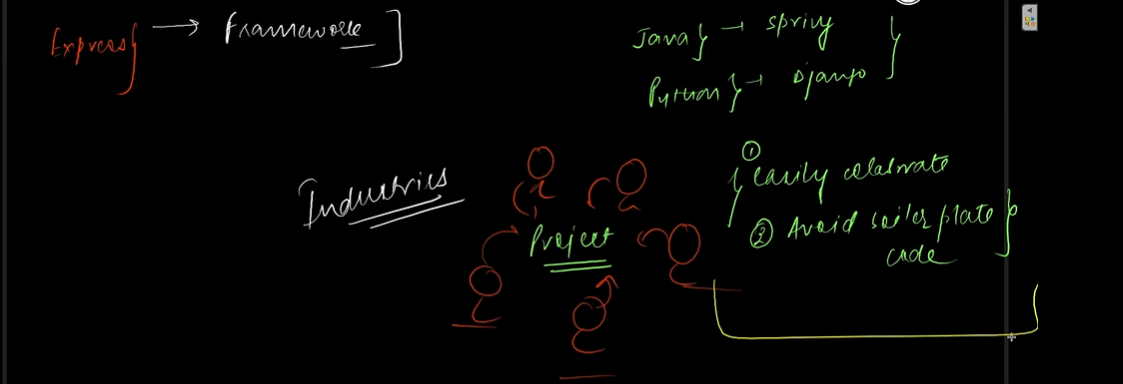 Express} → Framework]
Java} → Spring
Python} → Django
Industries
Project
① Easily colabrate
② Avoid boiler plate
code